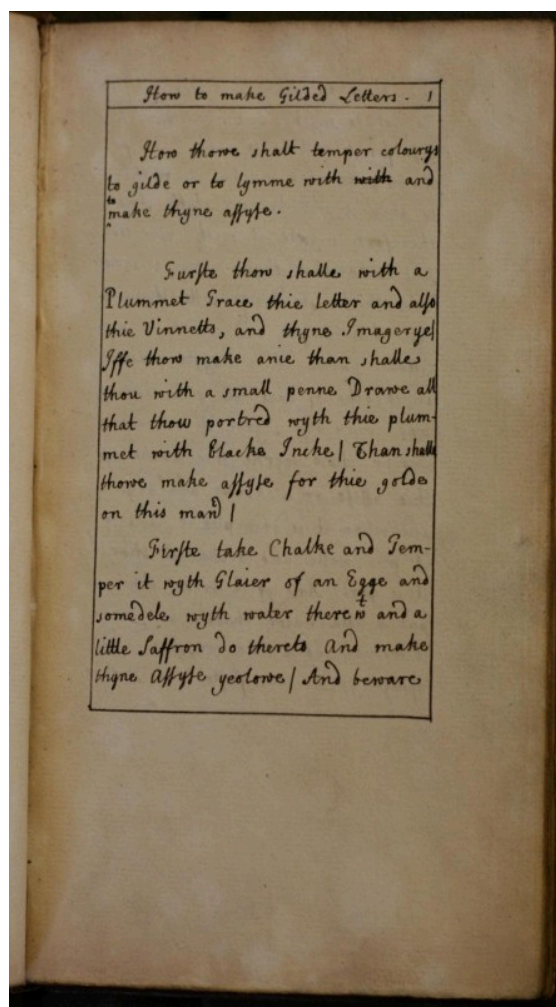 How to make Gilded Letters. 1
How thowe shalt temper colourys
to gilde or to lymme with with and
to make thyne assyse.
Furste thow shalle with a
Plummet Trace thie letter and also
thie Vinnetts, and thyne Imagerye/
Iffe thow make anie than shalle
thou with a small penne Drawe all
that thow portred wyth thie plum-
met with blacke Incke/ Than shalle
thowe make assyse for thie golde
on this man̄d/
Firste take Chalke and Tem-
per it wyth Glaier of an Egge and
somedele wyth water therewt and a
little Saffron do thereto And make
thyne Assyse yeolowe/ And beware